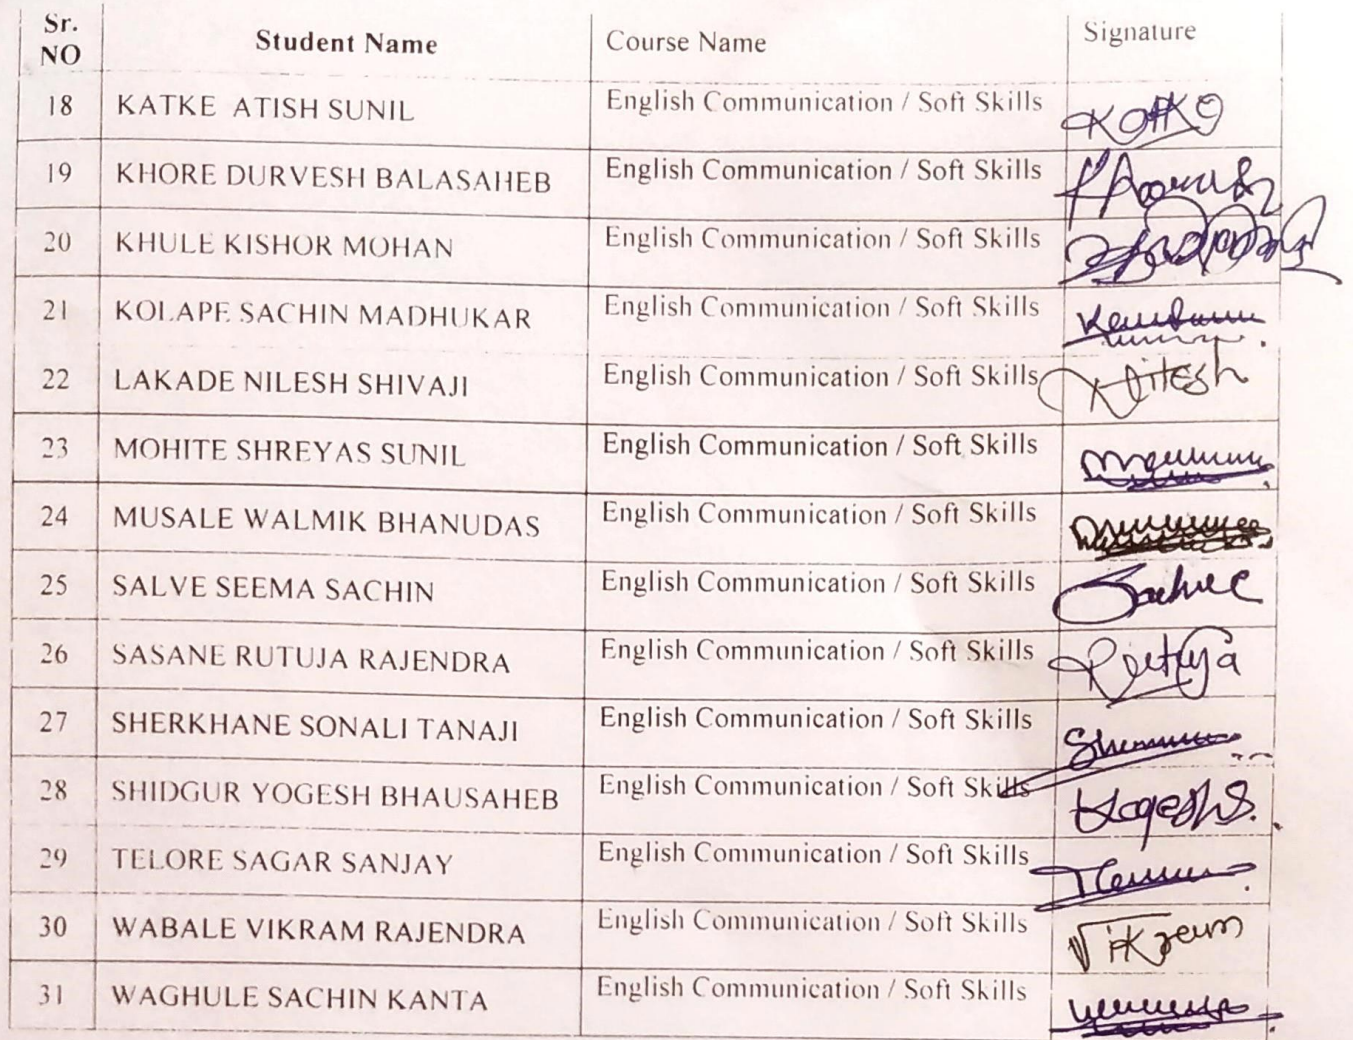 Sr. NO Student Name Course Name Signature
18 KATKE ATISH SUNIL English Communication / Soft Skills Katke
19 KHORE DURVESH BALASAHEB English Communication / Soft Skills
20 KHULE KISHOR MOHAN English Communication / Soft Skills
21 KOLAPE SACHIN MADHUKAR English Communication / Soft Skills
22 LAKADE NILESH SHIVAJI English Communication / Soft Skills Nilesh
23 MOHITE SHREYAS SUNIL English Communication / Soft Skills
24 MUSALE WALMIK BHANUDAS English Communication / Soft Skills
25 SALVE SEEMA SACHIN English Communication / Soft Skills
26 SASANE RUTUJA RAJENDRA English Communication / Soft Skills Rutuja
27 SHERKHANE SONALI TANAJI English Communication / Soft Skills
28 SHIDGUR YOGESH BHAUSAHEB English Communication / Soft Skills Yogesh S.
29 TELORE SAGAR SANJAY English Communication / Soft Skills
30 WABALE VIKRAM RAJENDRA English Communication / Soft Skills Vikram
31 WAGHULE SACHIN KANTA English Communication / Soft Skills